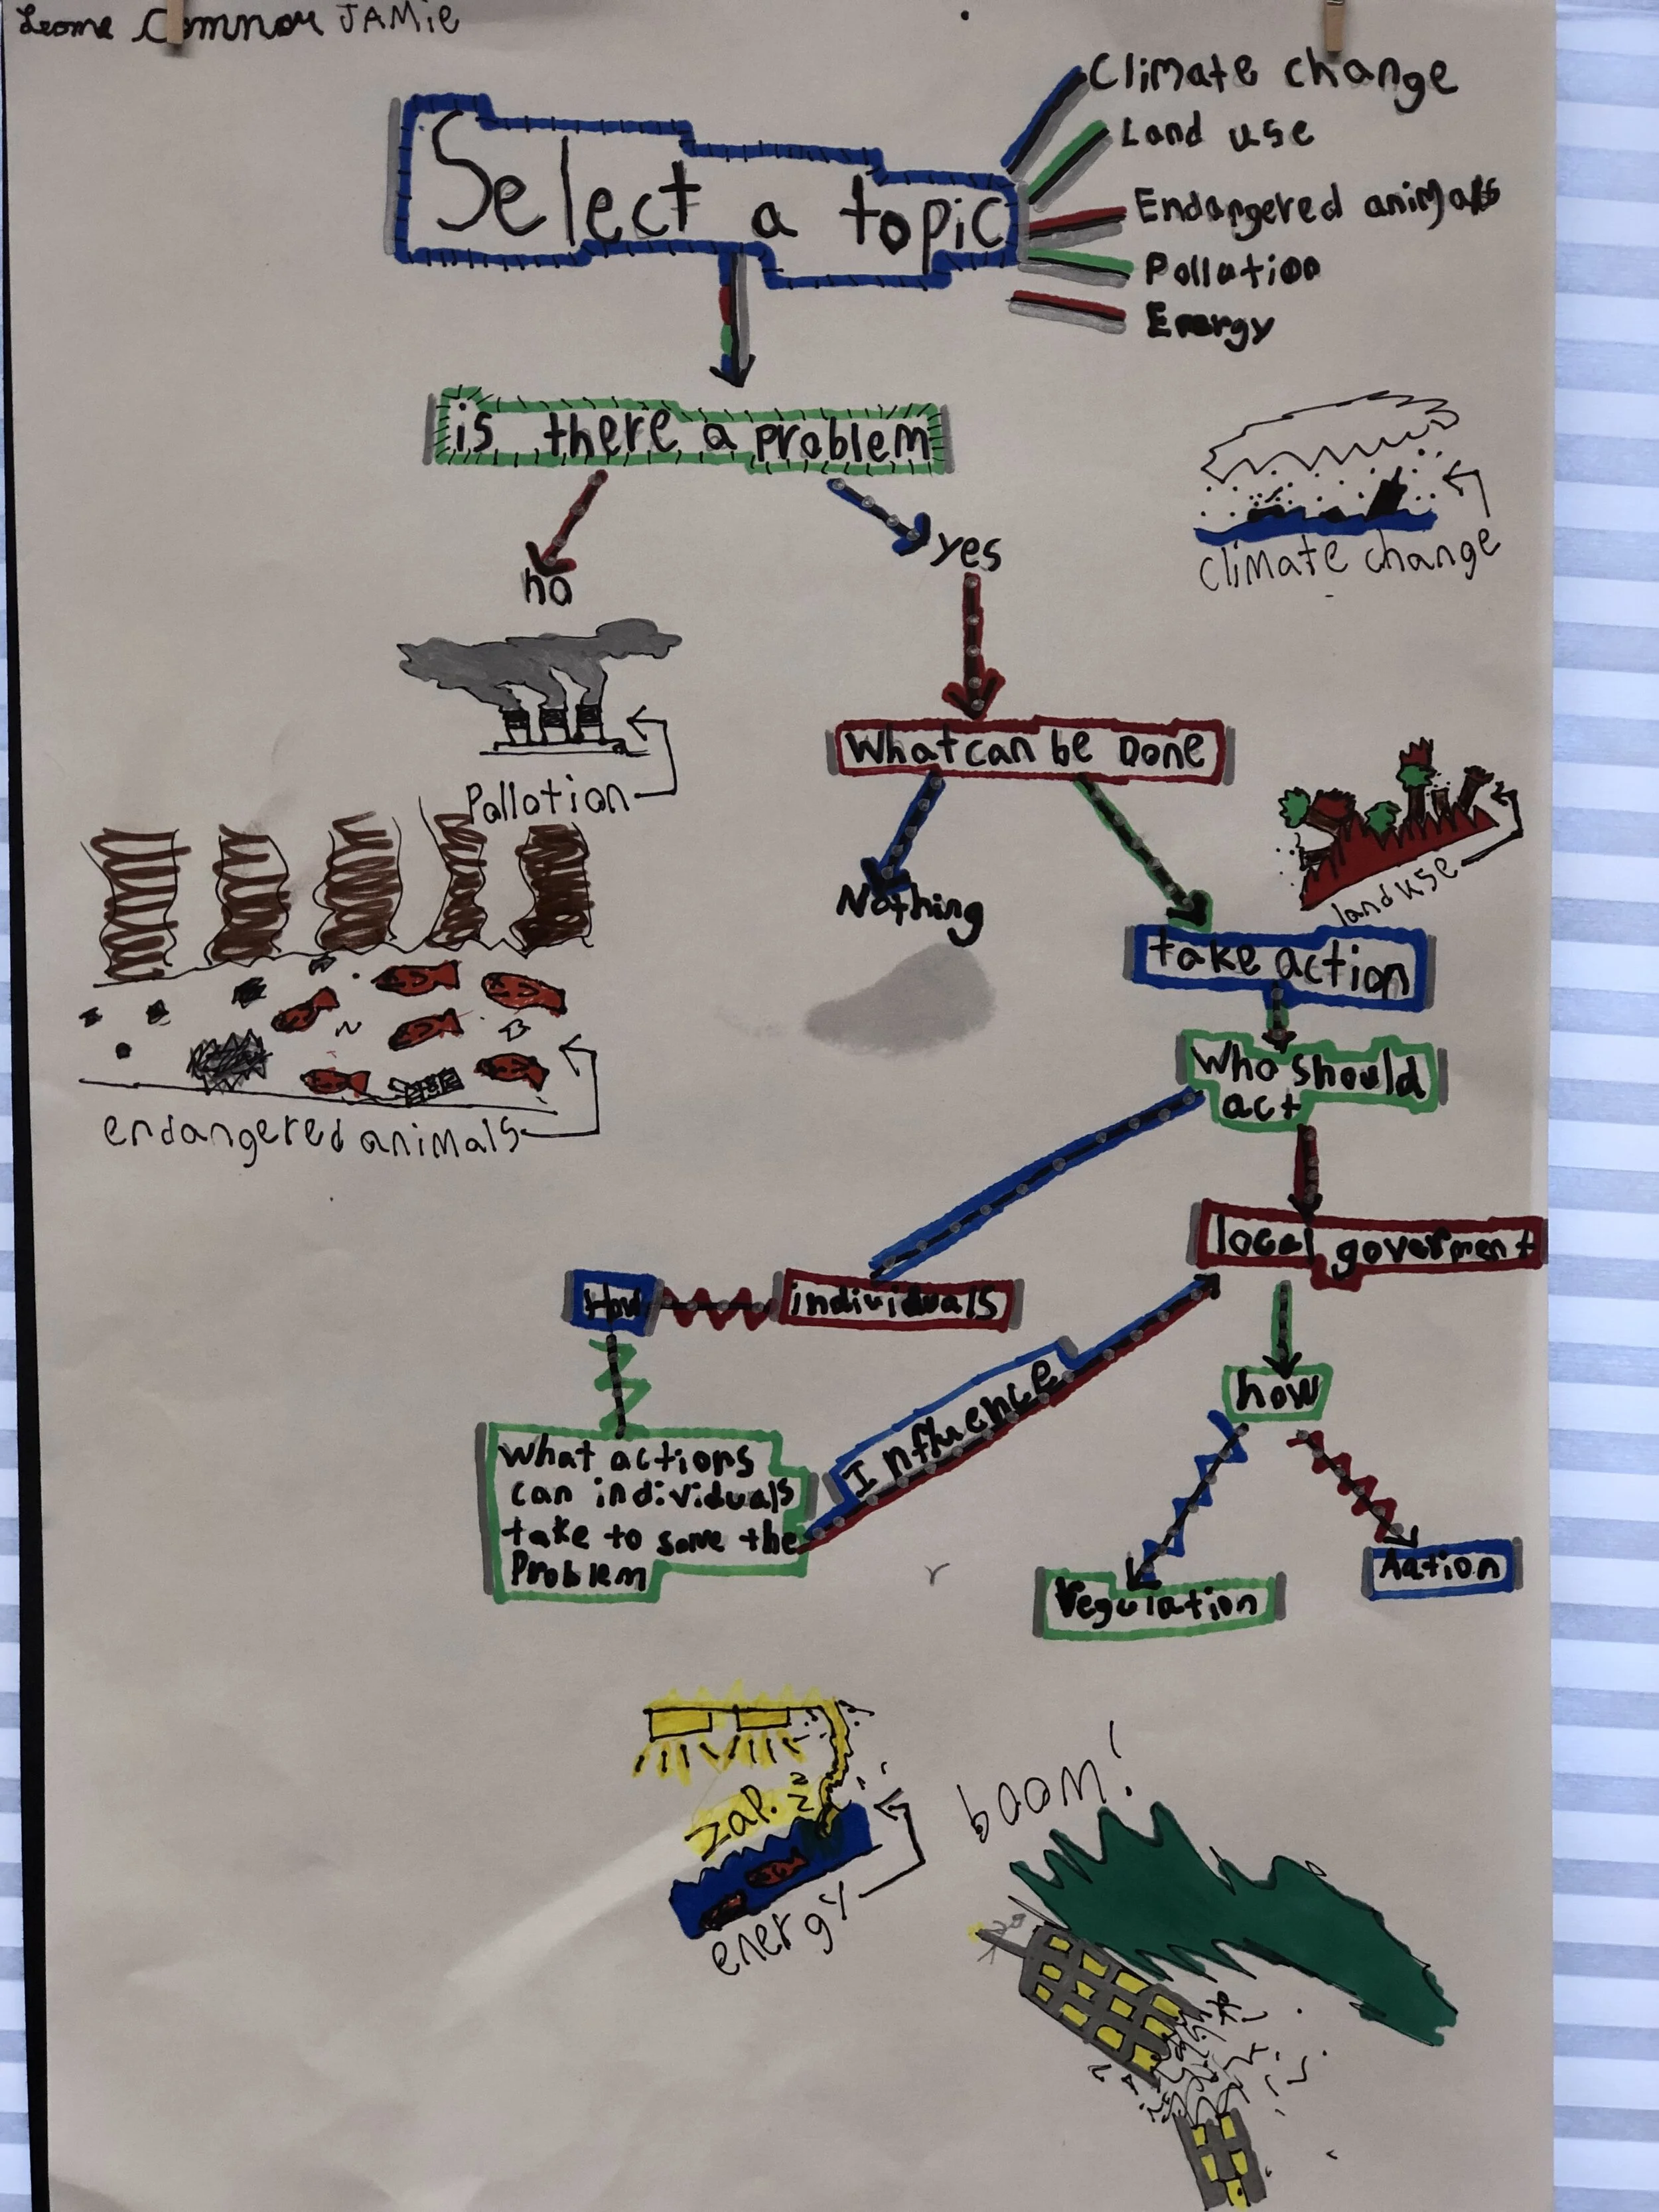 JAMIE
Climate change
Land use
Select a topic
Endangered animals
Pollution
Energy
is there a problem
no
yes
climate change
What can be Done
Pollotion
Nothing
land use
take action
Who should
act
endangered animals
local goverment
How
individuals
Influence
how
what actions
can individuals
take to some the
Problem
Aation
regulation
zap.
boom!
energy